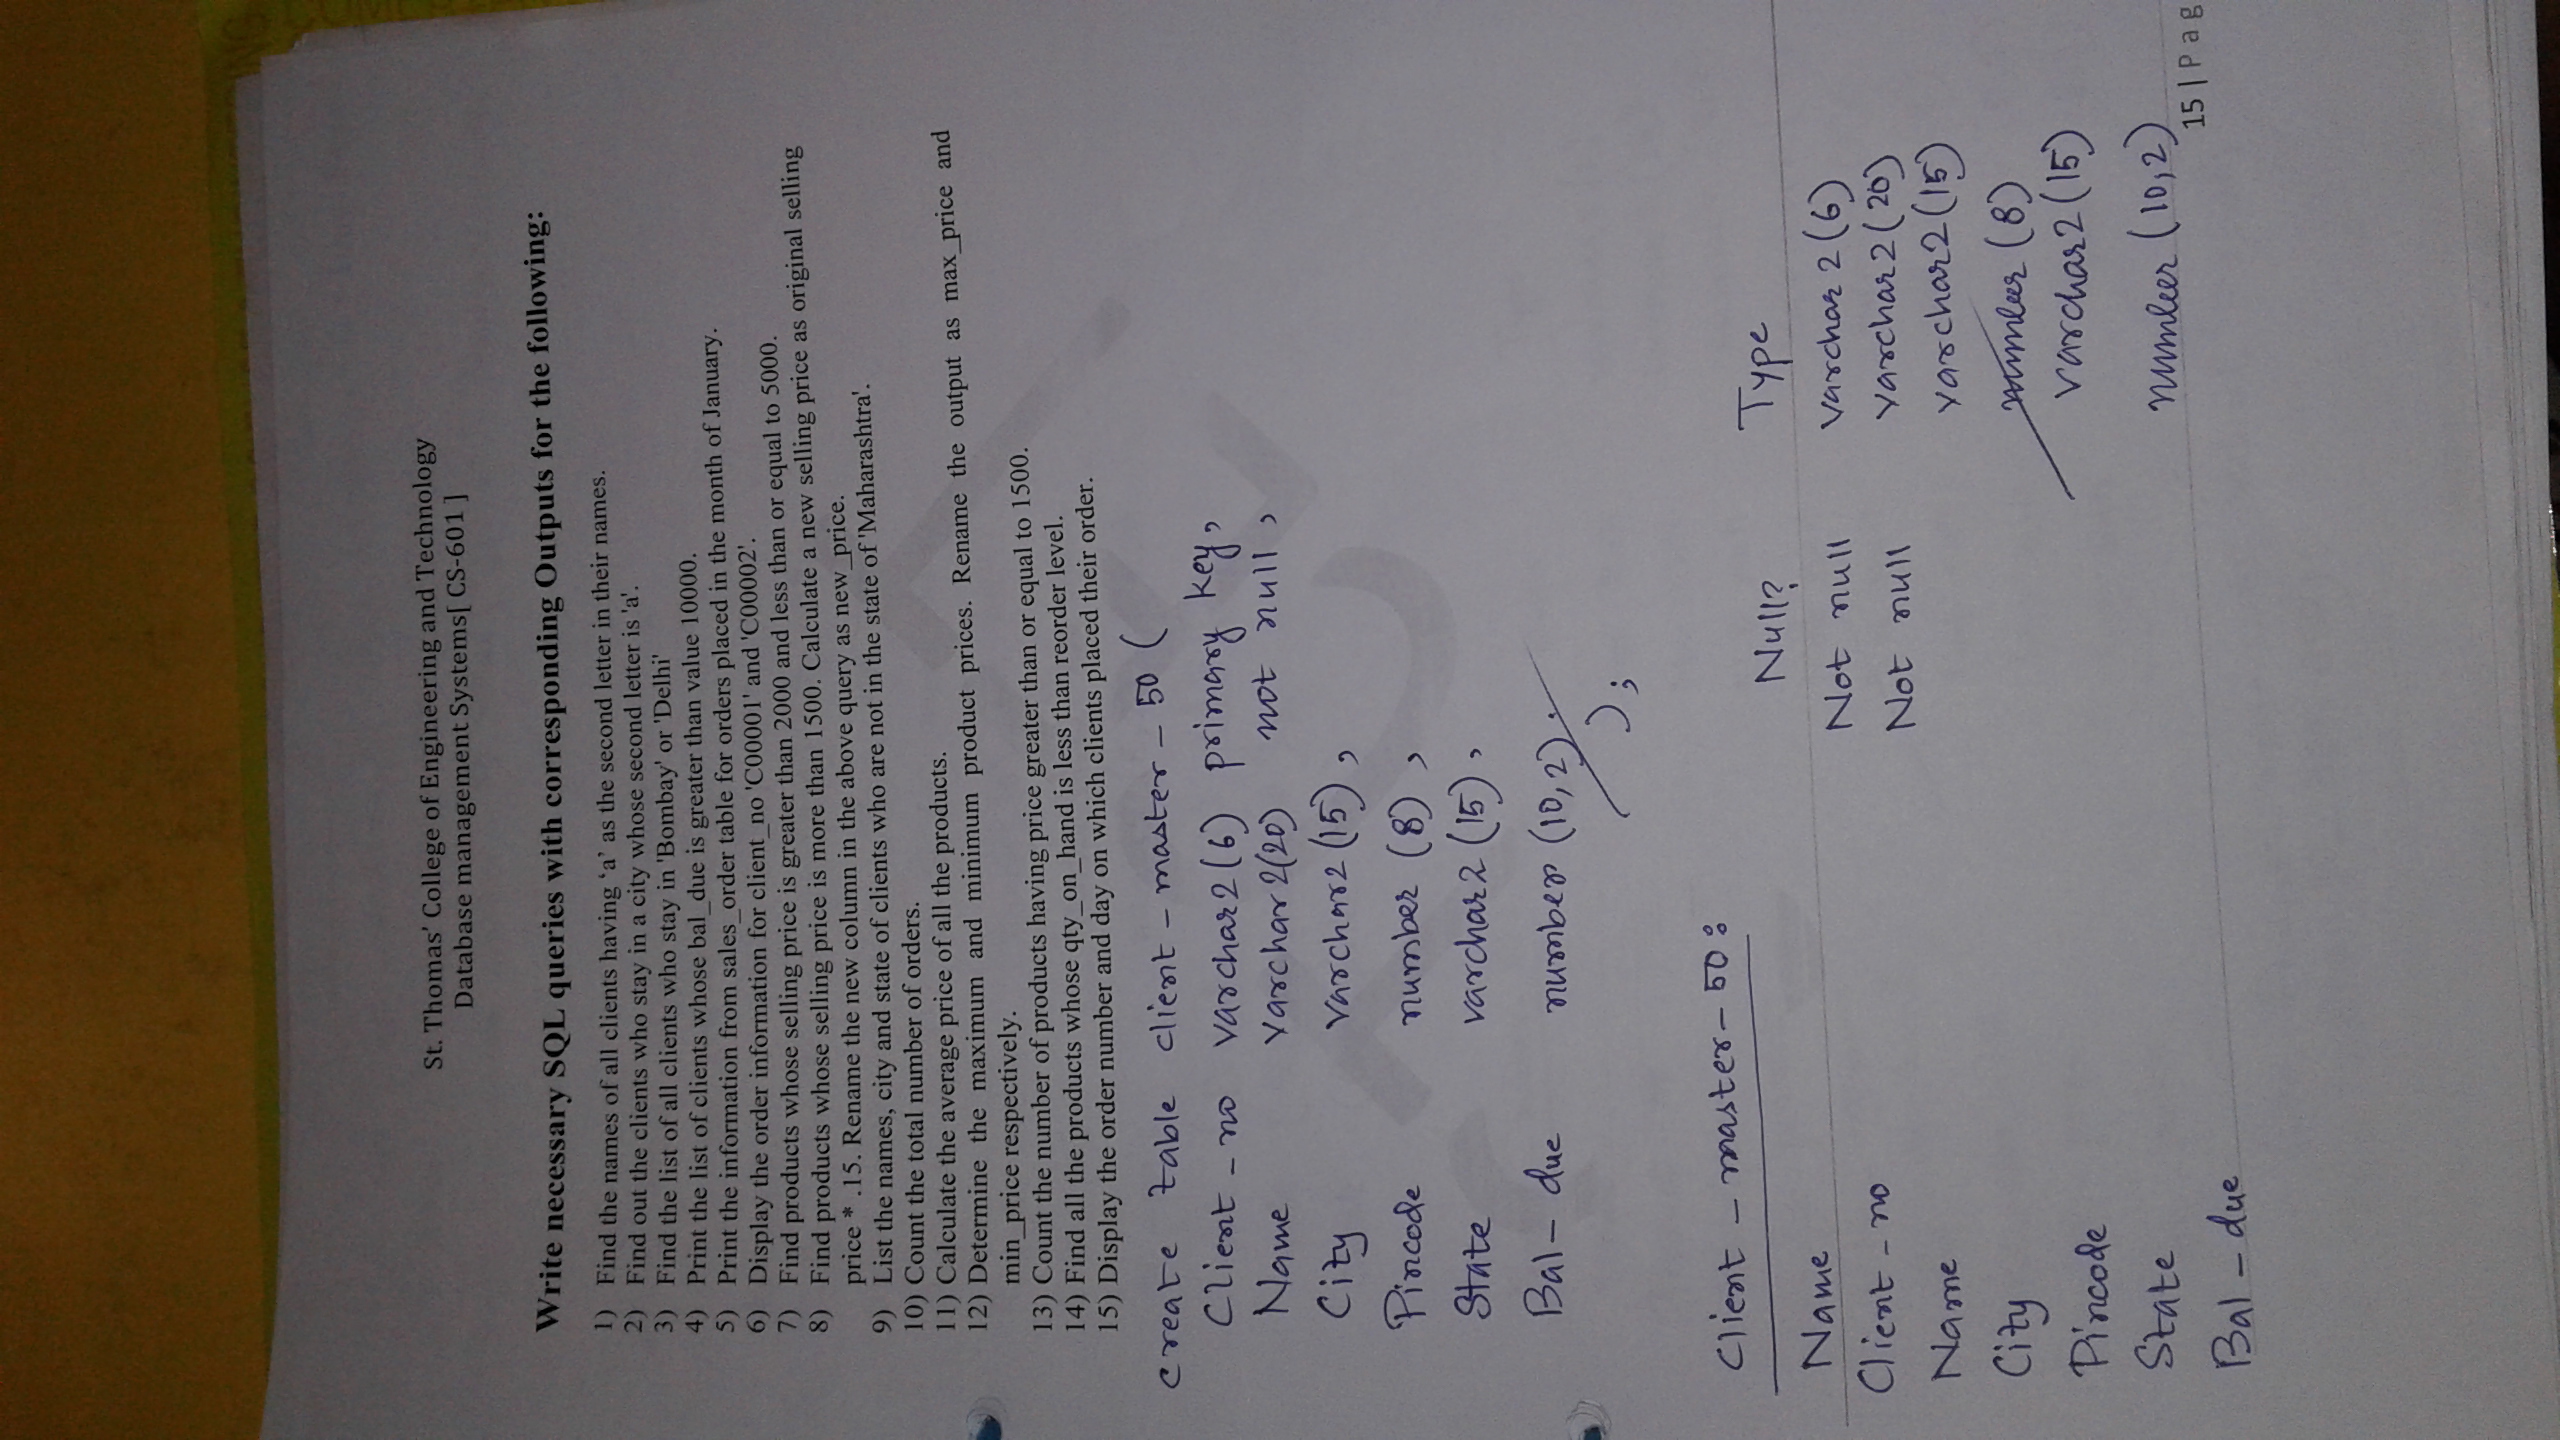 St. Thomas' College of Engineering and Technology
Database management Systems[ CS-601 ]
Write necessary SQL queries with corresponding Outputs for the following:
1) Find the names of all clients having ‘a’ as the second letter in their names.
2) Find out the clients who stay in a city whose second letter is 'a'.
3) Find the list of all clients who stay in 'Bombay' or 'Delhi'
4) Print the list of clients whose bal_due is greater than value 10000.
5) Print the information from sales_order table for orders placed in the month of January.
6) Display the order information for client_no 'C00001' and 'C00002'.
7) Find products whose selling price is greater than 2000 and less than or equal to 5000.
8) Find products whose selling price is more than 1500. Calculate a new selling price as original selling
price * .15. Rename the new column in the above query as new_price.
9) List the names, city and state of clients who are not in the state of 'Maharashtra'.
10) Count the total number of orders.
11) Calculate the average price of all the products.
12) Determine the maximum and minimum product prices. Rename the output as max_price and
min_price respectively.
13) Count the number of products having price greater than or equal to 1500.
14) Find all the products whose qty_on_hand is less than reorder level.
15) Display the order number and day on which clients placed their order.
create table client-master-50 (
Client-no varchar2(6) primary key,
Name varchar2(20) not null,
City varchar2(15),
Pincode number (8),
State varchar2(15),
Bal-due number (10,2).
);
Client-master-50:
Name Null? Type
Client-no Not null varchar2(6)
Name Not null varchar2(20)
City varchar2(15)
Pincode number (8)
State varchar2(15)
Bal-due number (10,2)
15 | Pag